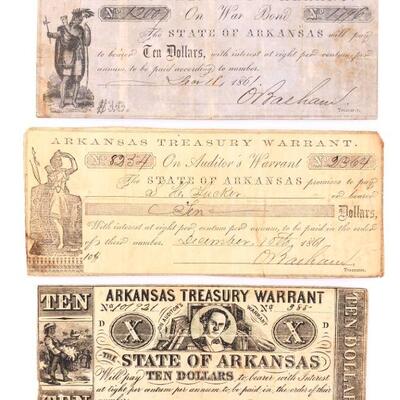 No 1200 On War Bond No 1796
The STATE OF ARKANSAS will pay
to bearer Ten Dollars, with interest at eight per centum per
annum, to be paid according to number.
1861
$10.
Treasurer.
ARKANSAS TREASURY WARRANT.
No 8234 On Auditor's Warrant No 2364
The STATE OF ARKANSAS promises to pay
or bearer
Ten Dollars,
With interest at eight per centum per annum, to be paid in the order
of these number. December 1861
Treasurer.
TEN
ARKANSAS TREASURY WARRANT
No 101231 No 985
D X AUDITOR'S WARRANT X D
THE STATE OF ARKANSAS
Will pay TEN DOLLARS to bearer with Interest
at Eight per centum per annum, to be paid in the order of their
number
TEN
TEN DOLLARS